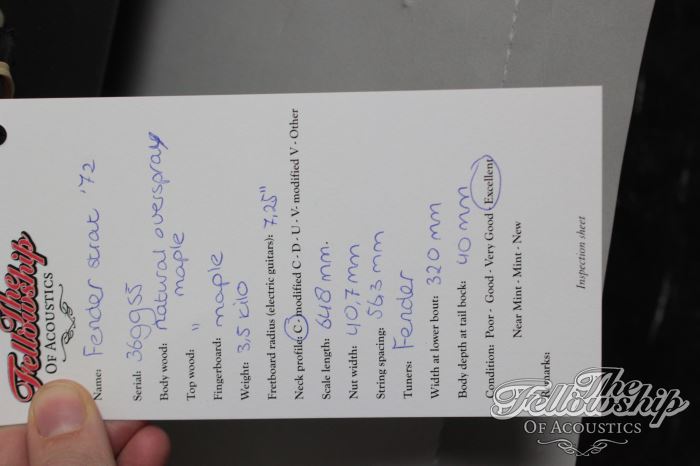 The
Fellowship
OF ACOUSTICS
Name: Fender strat '72
Serial: 369955
Body wood: natural overspray
maple
Top wood: "
Fingerboard: maple
Weight: 3,5 kilo
Fretboard radius (electric guitars): 7,25"
Neck profile: C - modified C - D - U - V- modified V - Other
Scale length: 648 mm.
Nut width: 40,7 mm
String spacing: 563 mm
Tuners: Fender
Width at lower bout: 320 mm
Body depth at tail bock: 40 mm
Condition: Poor - Good - Very Good - Excellent
Near Mint - Mint - New
Remarks:
Inspection sheet
The
Fellowship
OF ACOUSTICS